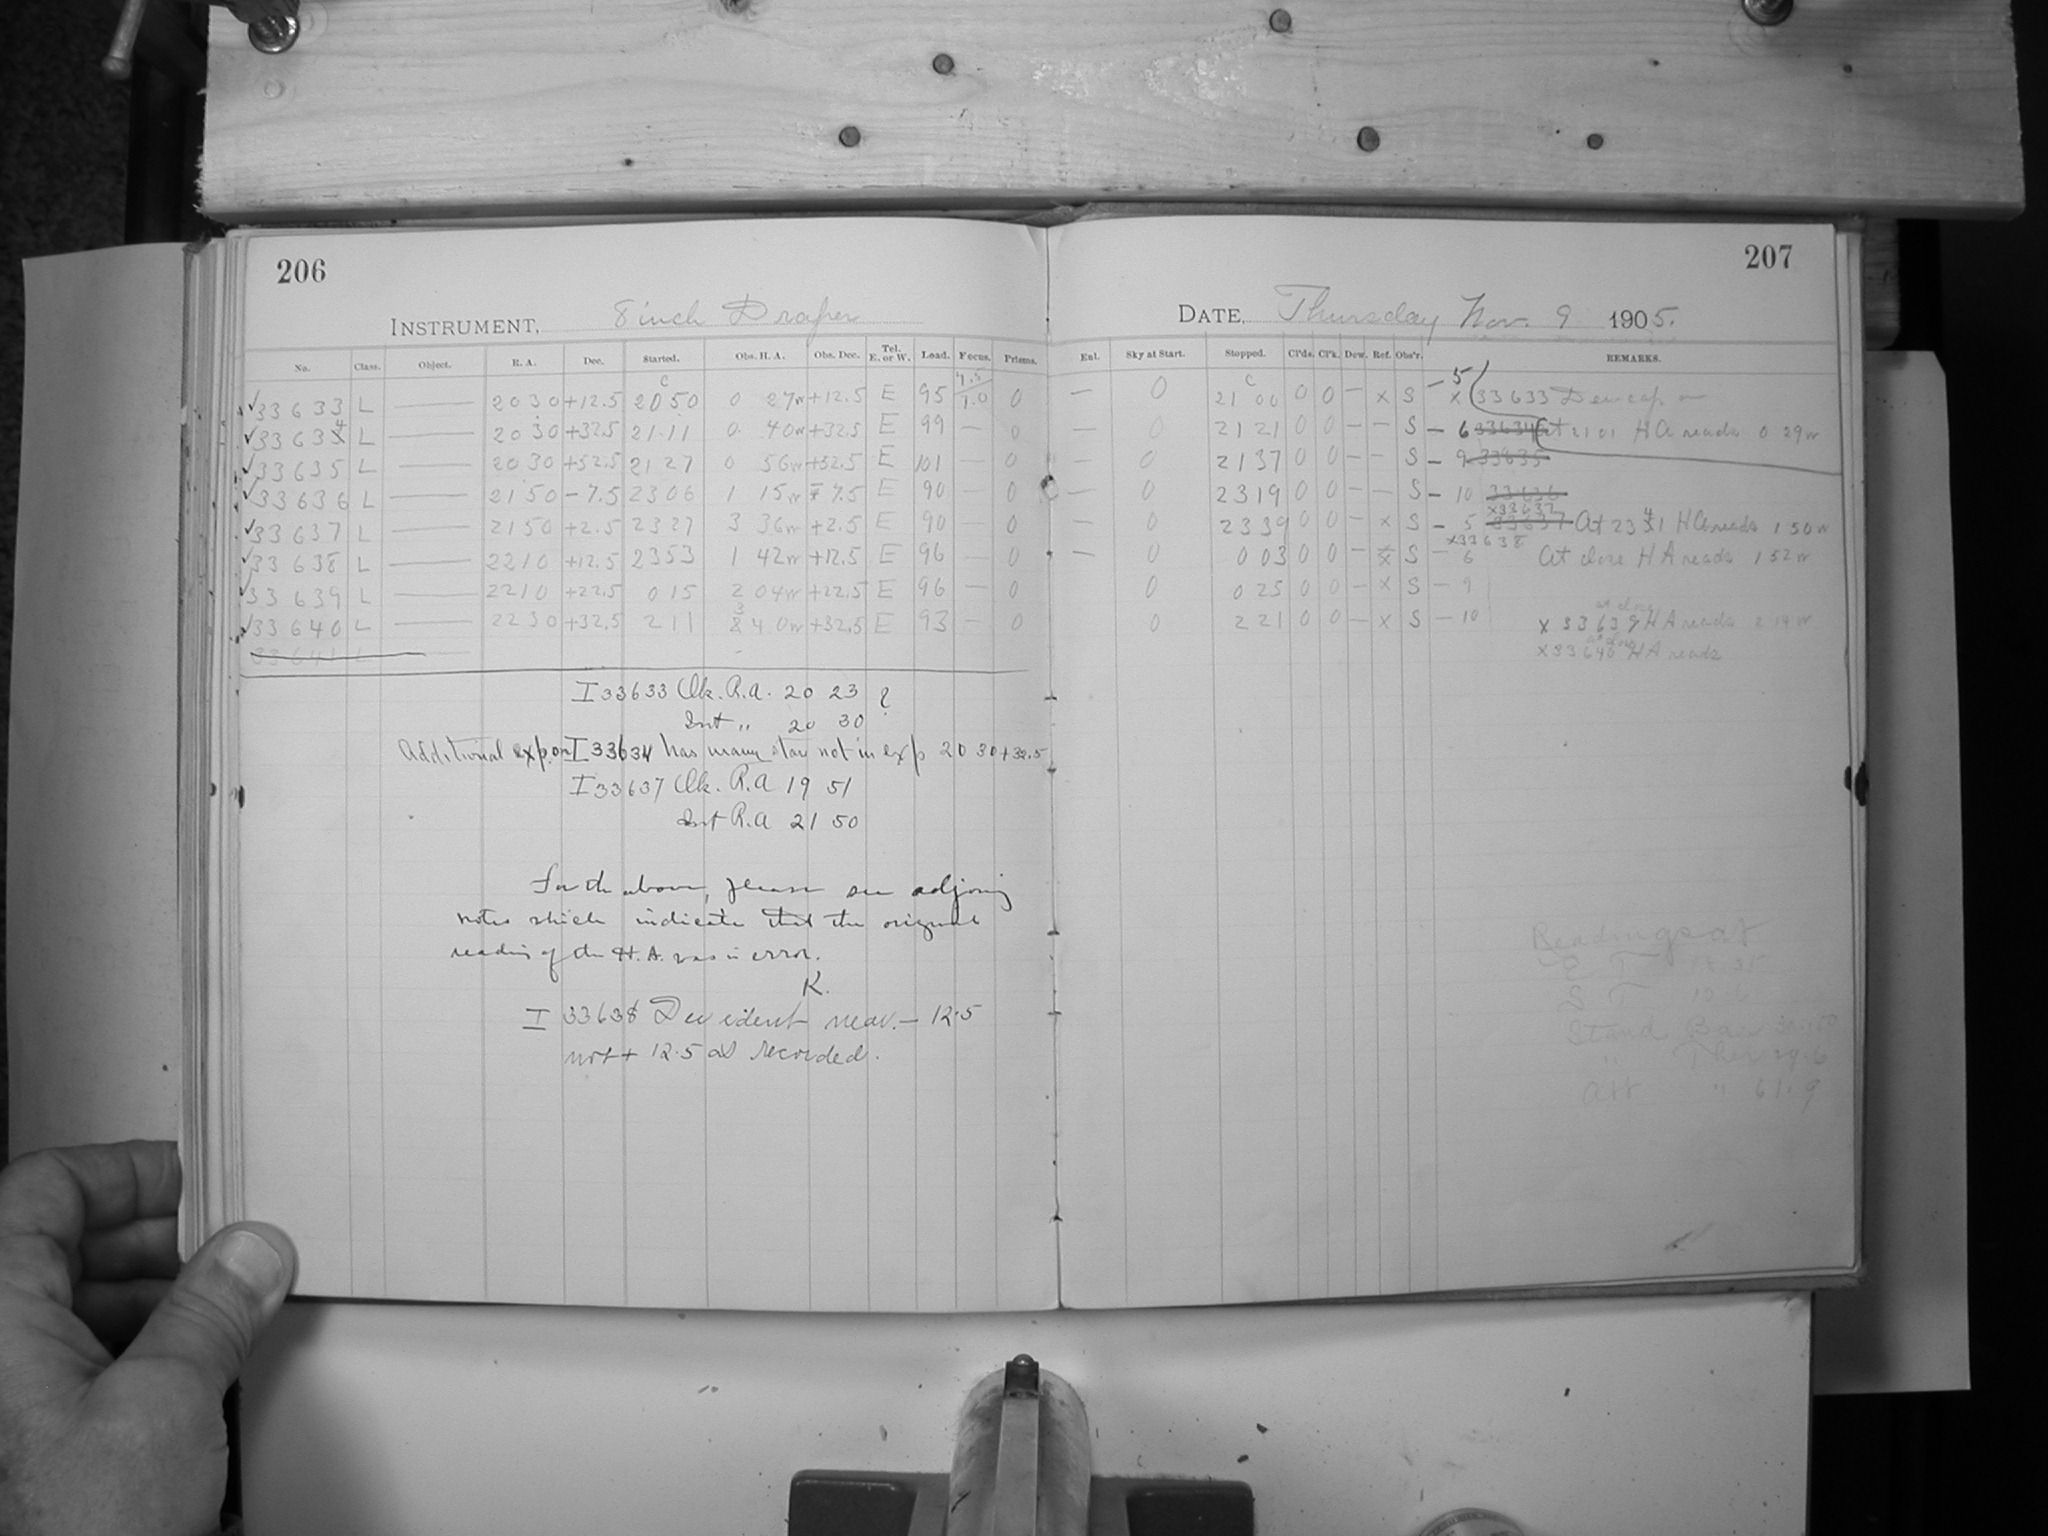 206
INSTRUMENT, 8 inch Draper
No. Class. Object. R. A. Dec. Started. Obs. H. A. Obs. Dec. Tel. E. or W. Load. Focus. Prisms.
✓33633 L — 20 30 +12.5 20 50 0 27w +12.5 E 95 0
✓33634 L — 20 30 +32.5 21 11 0 40w +32.5 E 99 — 0
✓33635 L — 20 30 +52.5 21 27 0 56w +52.5 E 101 — 0
✓33636 L — 21 50 -7.5 23 06 1 15w 7.5 E 90 — 0
✓33637 L — 21 50 +2.5 23 27 3 36w +2.5 E 90 — 0
✓33638 L — 22 10 +12.5 23 53 1 42w +12.5 E 96 — 0
✓33639 L — 22 10 +22.5 0 15 2 04w +22.5 E 96 — 0
✓33640 L — 22 30 +32.5 2 11 3 40w +32.5 E 93 — 0
33641 L —
I33633 Ck. R.A. 20 23 ?
Int " 20 30
Additional exp. on I33634 has many stars not in exp 20 30 +32.5
I33637 Ck. R.A 19 51
Int R.A 21 50
For the above, please see adjoing
notes which indicate that the original
reading of the H.A. was in error.
K.
I 33638 Dec evident near - 12.5
not + 12.5 as recorded.
207
DATE, Thursday Nov. 9 1905.
Enl. Sky at Start. Stopped. Cl'ds. Cl'k. Dew. Ref. Obs'r. REMARKS.
— 0 21 00 0 0 — x S — 5 x 33633 Dew cap on
0 21 21 0 0 — — S — 6 33634 At 21 01 H A reads 0 29w
— 0 21 37 0 0 — — S — 9 33635
— 0 23 19 0 0 — — S — 10 33636
x33637
— 0 23 39 0 0 — x S — 5 33637 At 23 41 HA reads 1 50w
x33638
— 0 0 03 0 0 — x S — 6 At close H A reads 1 52w
0 0 25 0 0 — x S — 9
at close
0 2 21 0 0 — x S — 10 x 33639 HA reads 2 14w
at close
x33640 HA reads
Readings at
E T
S T
Stand Bar
" Ther 29.6
Att " 61.9